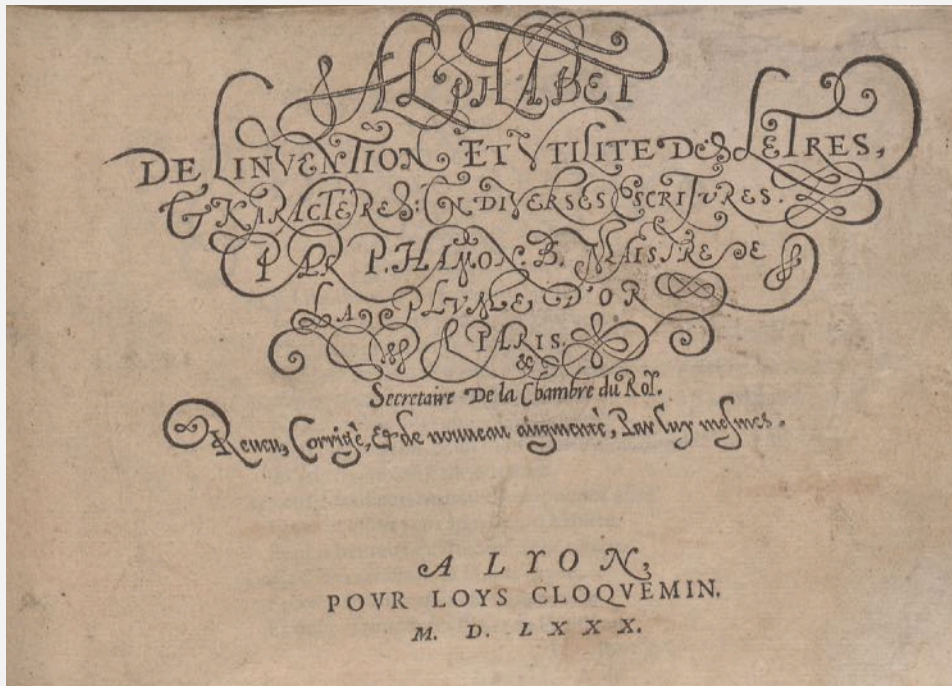 ALPHABET
DE LINVENTION ET VTILITE DES LETRES,
& KARACTERES: EN DIVERSES ESCRITURES.
PAR P. HAMON. B. MAISTRE DE
LA PLVME D'OR
A PARIS.
&
Secretaire De la Chambre du Roy.
Reueu, Corrigè, Et de nouueau augmentè, Par luy mesmes.
A LYON,
POVR LOYS CLOQVEMIN.
M. D. LXXX.